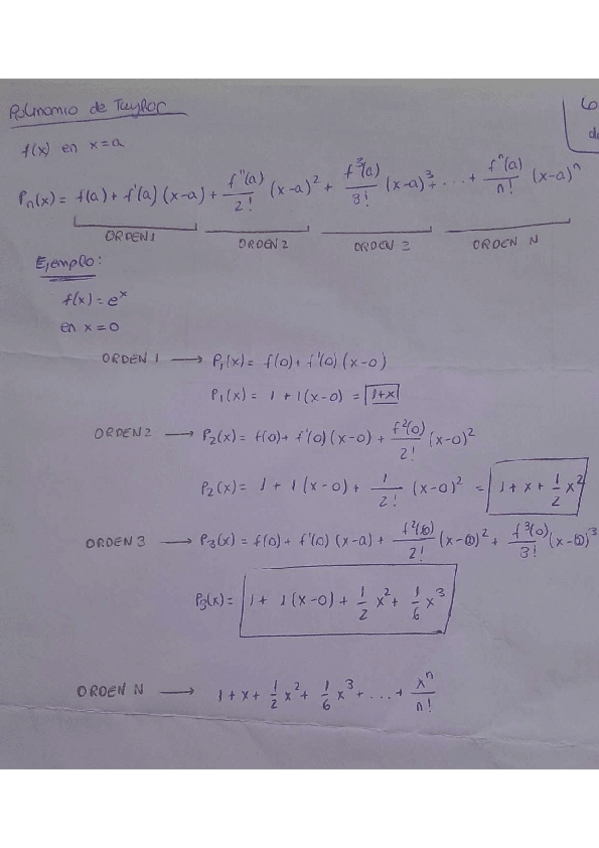 Polinomio de Taylor
f(x) en x=a
Pn(x) = f(a) + f'(a) (x-a) + f''(a)/2! (x-a)² + f³(a)/3! (x-a)³ + ... + fⁿ(a)/n! (x-a)ⁿ
ORDEN 1 ORDEN 2 ORDEN 3 ORDEN N
Ejemplo:
f(x) = eˣ
en x=0
ORDEN 1 → P₁(x) = f(0) + f'(0) (x-0)
P₁(x) = 1 + 1(x-0) = 1+x
ORDEN 2 → P₂(x) = f(0) + f'(0) (x-0) + f²(0)/2! (x-0)²
P₂(x) = 1 + 1 (x-0) + 1/2! (x-0)² = 1 + x + 1/2 x²
ORDEN 3 → P₃(x) = f(0) + f'(0) (x-a) + f²(0)/2! (x-0)² + f³(0)/3! (x-0)³
P₃(x) = 1 + 1(x-0) + 1/2 x² + 1/6 x³
ORDEN N → 1 + x + 1/2 x² + 1/6 x³ + ... + xⁿ/n!